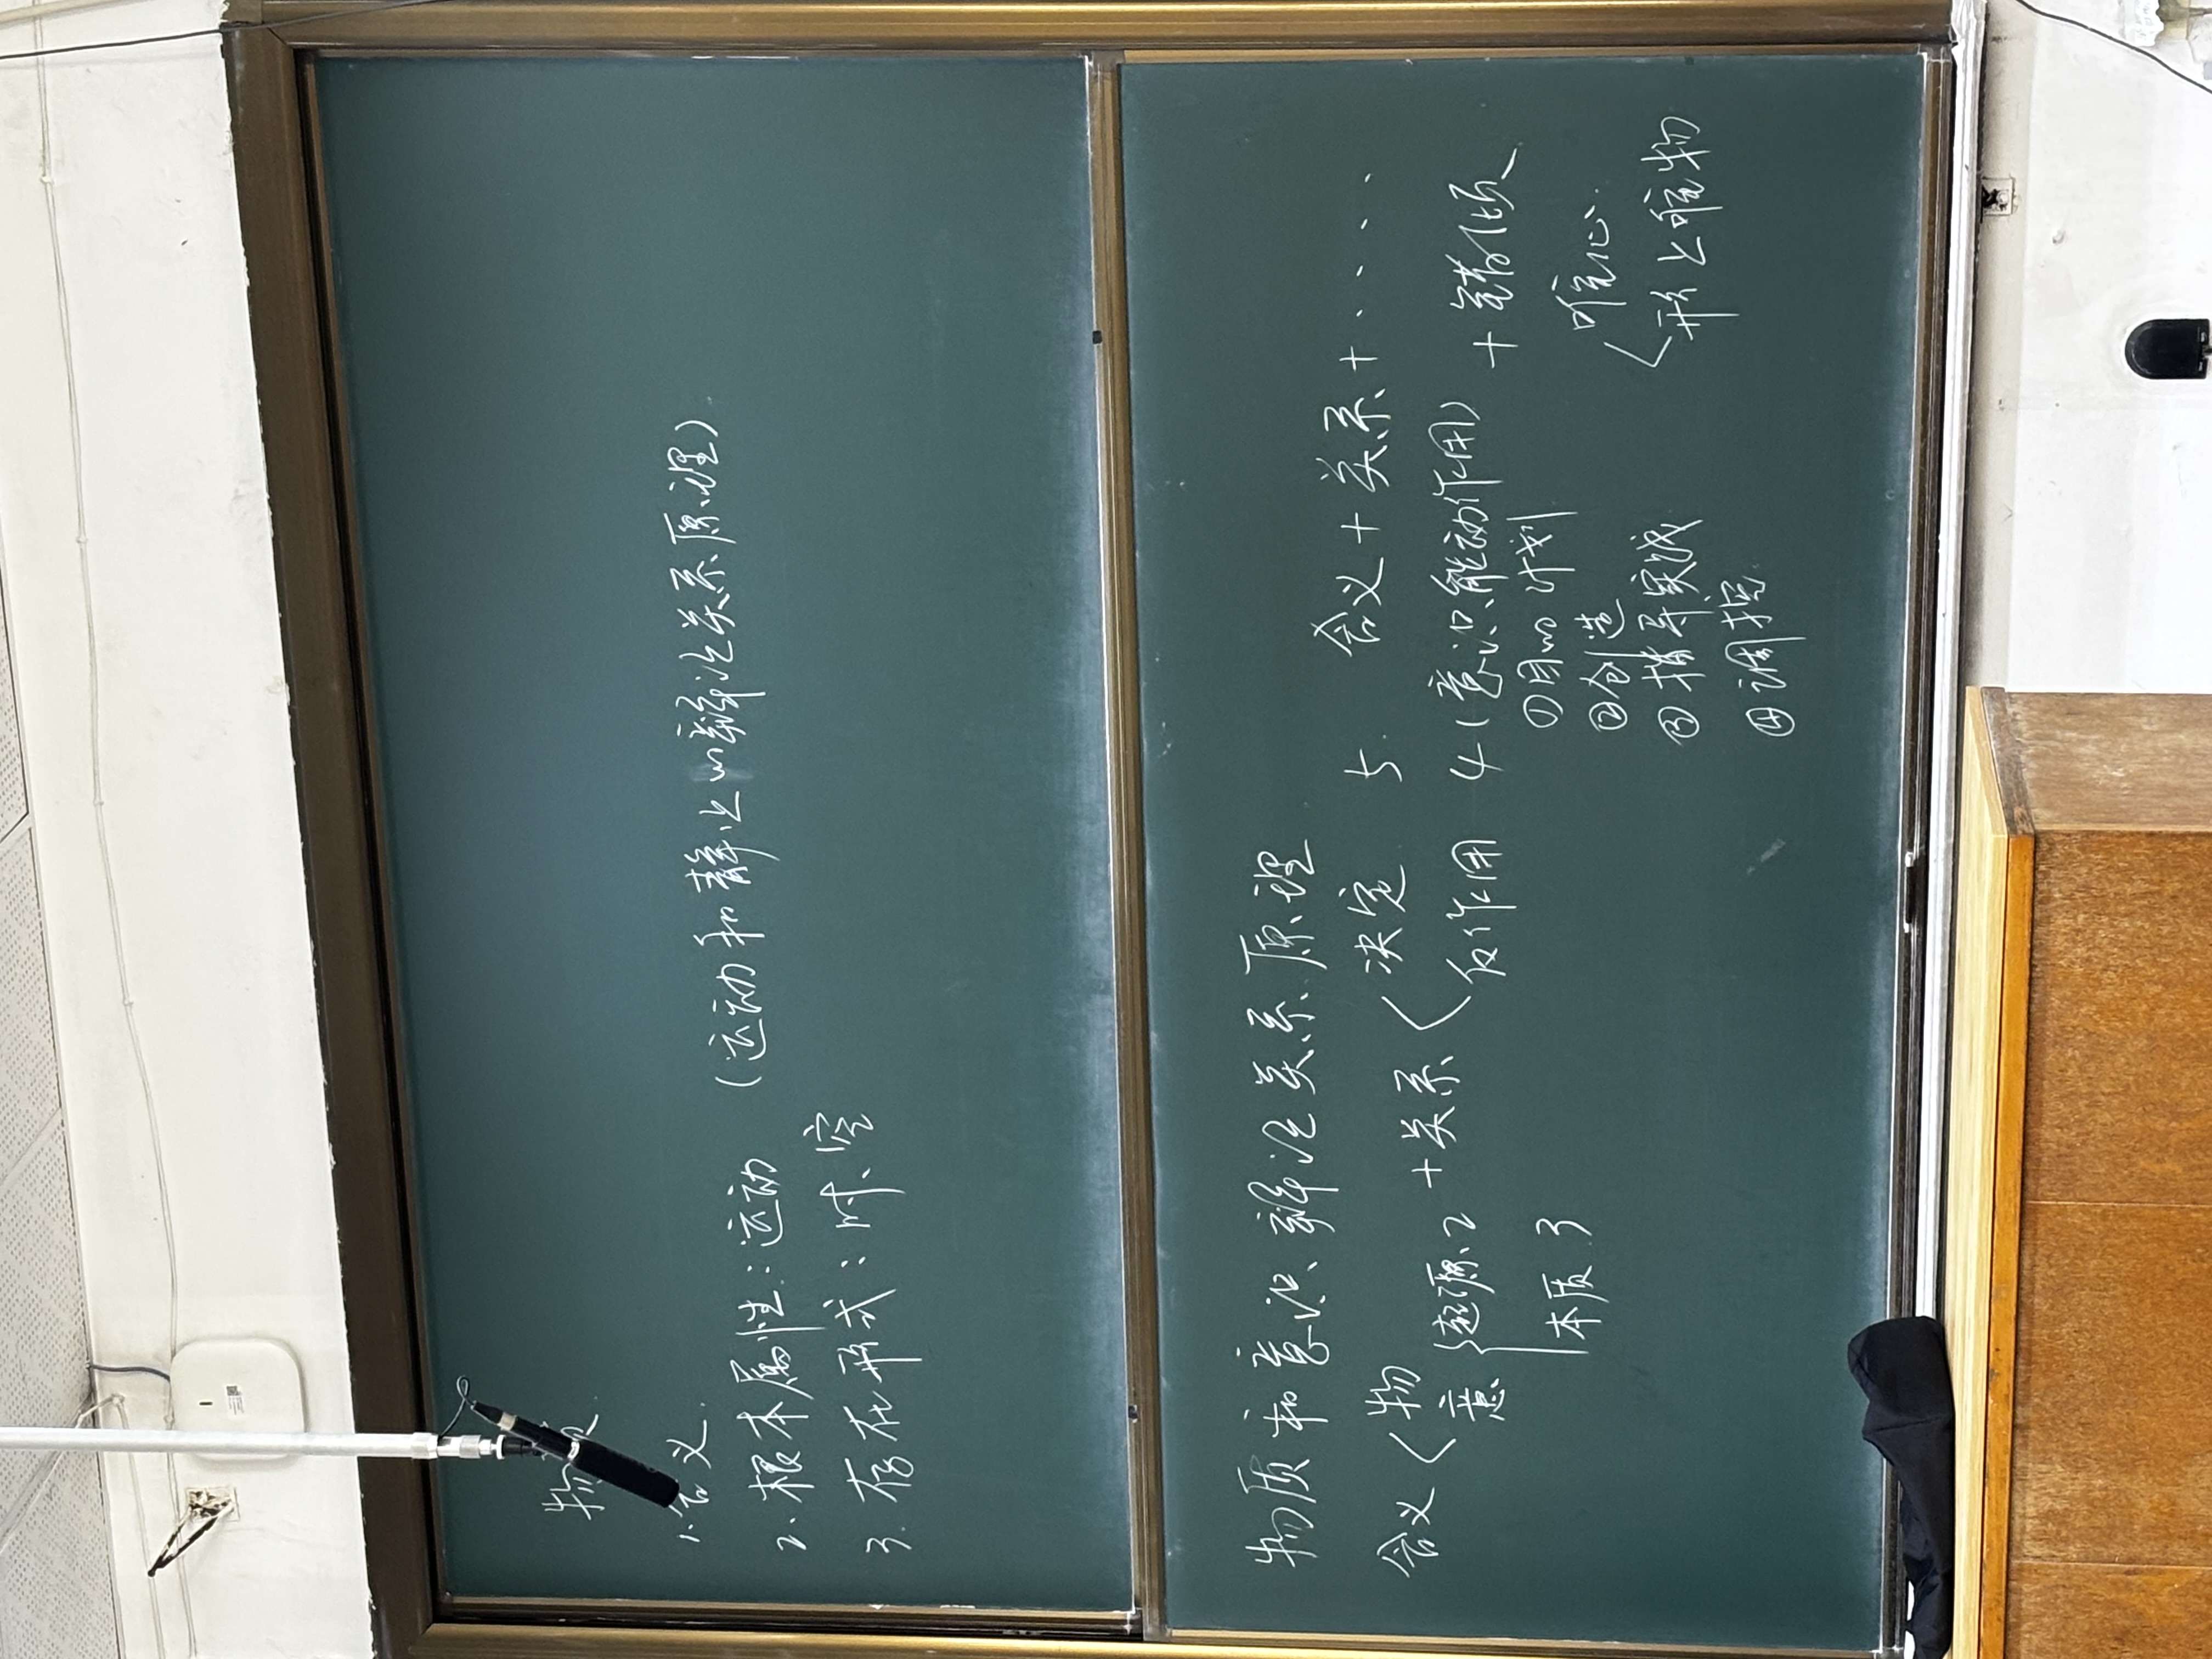 物质
1.含义.
2.根本属性:运动 (运动和静止的辩证关系原理)
3.存在形式:时、空
物质和意识辩证关系原理
含义 物 意 起源2 本质.3 +关系 决定 5. 反作用 4(意识能动作用)
①目的 计划
②创造
③指导实践
④调控
含义+关系+....
+错倾
唯心.
形上唯物